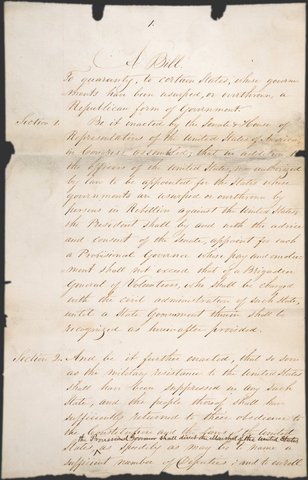 1
A Bill
To guaranty, to certain States, whose govern-
ments have been usurped, or overthrown, a
Republican form of Government.
Section 1. Be it enacted by the Senate & House of
Representatives of the United States of America,
in Congress assembled, that in
the officers of the United States, now authorized
by law to be appointed for the States whose
governments are usurped or overthrown by
persons in Rebellion against the United States,
the President shall by and with the advice
and consent of the Senate, appoint for each
a Provisional Governor whose pay and emolu-
ment shall not exceed that of a Brigadier
General of Volunteers, who shall be charged
with the civil administration of such State,
until a State Government therein shall be
recognized as hereinafter provided.
Section 2. And be it further enacted, that so soon
as the military resistance to the United States
shall have been suppressed in any such
State, and the people thereof shall have
sufficiently returned to their obedience to
the Constitution and the laws of the United
the Provisional Governor shall direct the Marshal of the United States
States, as speedily as may be to name a
sufficient number of Deputies, and to enroll